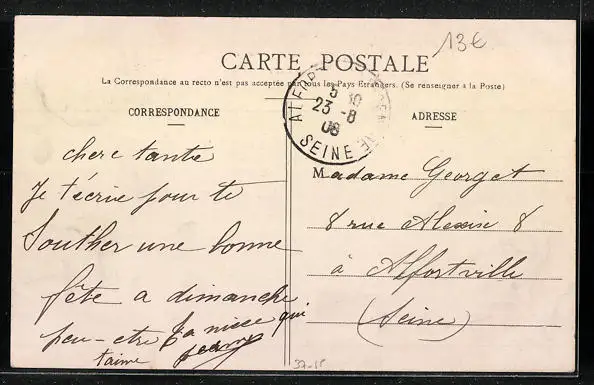 13€
CARTE POSTALE
La Correspondance au recto n'est pas acceptée par tous les Pays Etrangers. (Se renseigner à la Poste)
CORRESPONDANCE
ADRESSE
5 30
23 - 8
08
SEINE
chere tante
Je t'écrie pour te
Souther une bonne
fête a dimanche
peu-etre ta niece qui
t'aime
Madame Georget
8 rue Alexis 8
à Alfortville
(Seine)
37-15